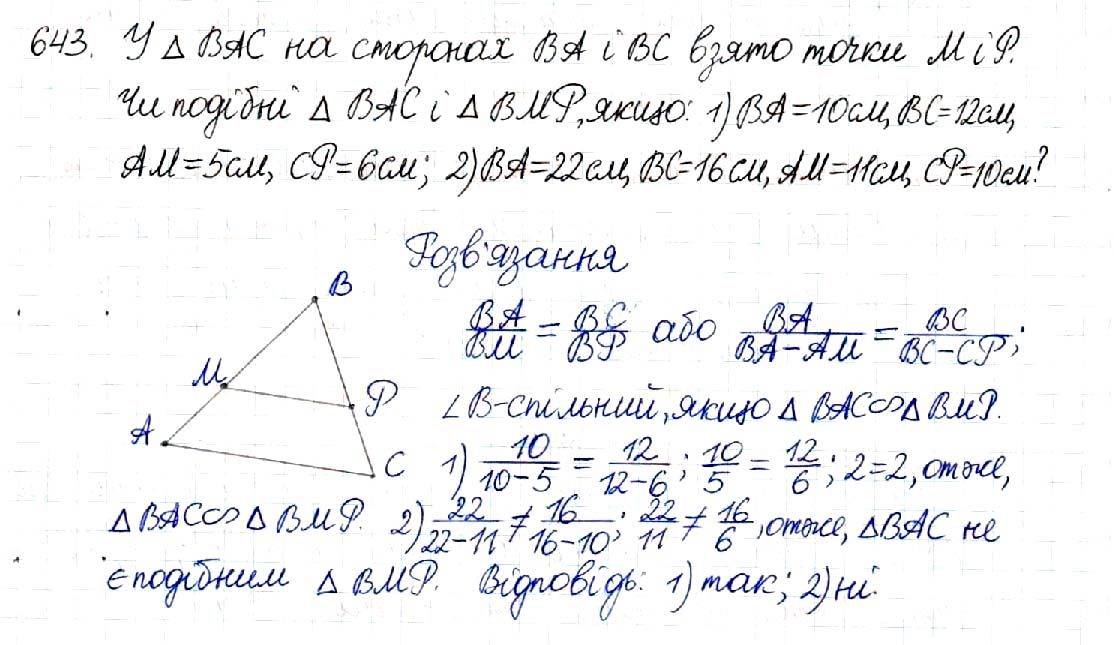 643. У △ BAC на сторонах BA і BC взято точки M і P.
Чи подібні △ BAC і △ BMP, якщо: 1) BA=10см, BC=12см,
AM=5см, CP=6см; 2) BA=22см, BC=16см, AM=11см, CP=10см?
Розв'язання
B
BA/BM = BC/BP або BA/(BA-AM) = BC/(BC-CP);
M
P
∠B-спільний, якщо △ BAC∽△ BMP.
A
C
1) 10/(10-5) = 12/(12-6); 10/5 = 12/6; 2=2, отже,
△ BAC∽△ BMP. 2) 22/(22-11) ≠ 16/(16-10); 22/11 ≠ 16/6, отже, △BAC не
є подібним △ BMP. Відповідь: 1) так; 2) ні.